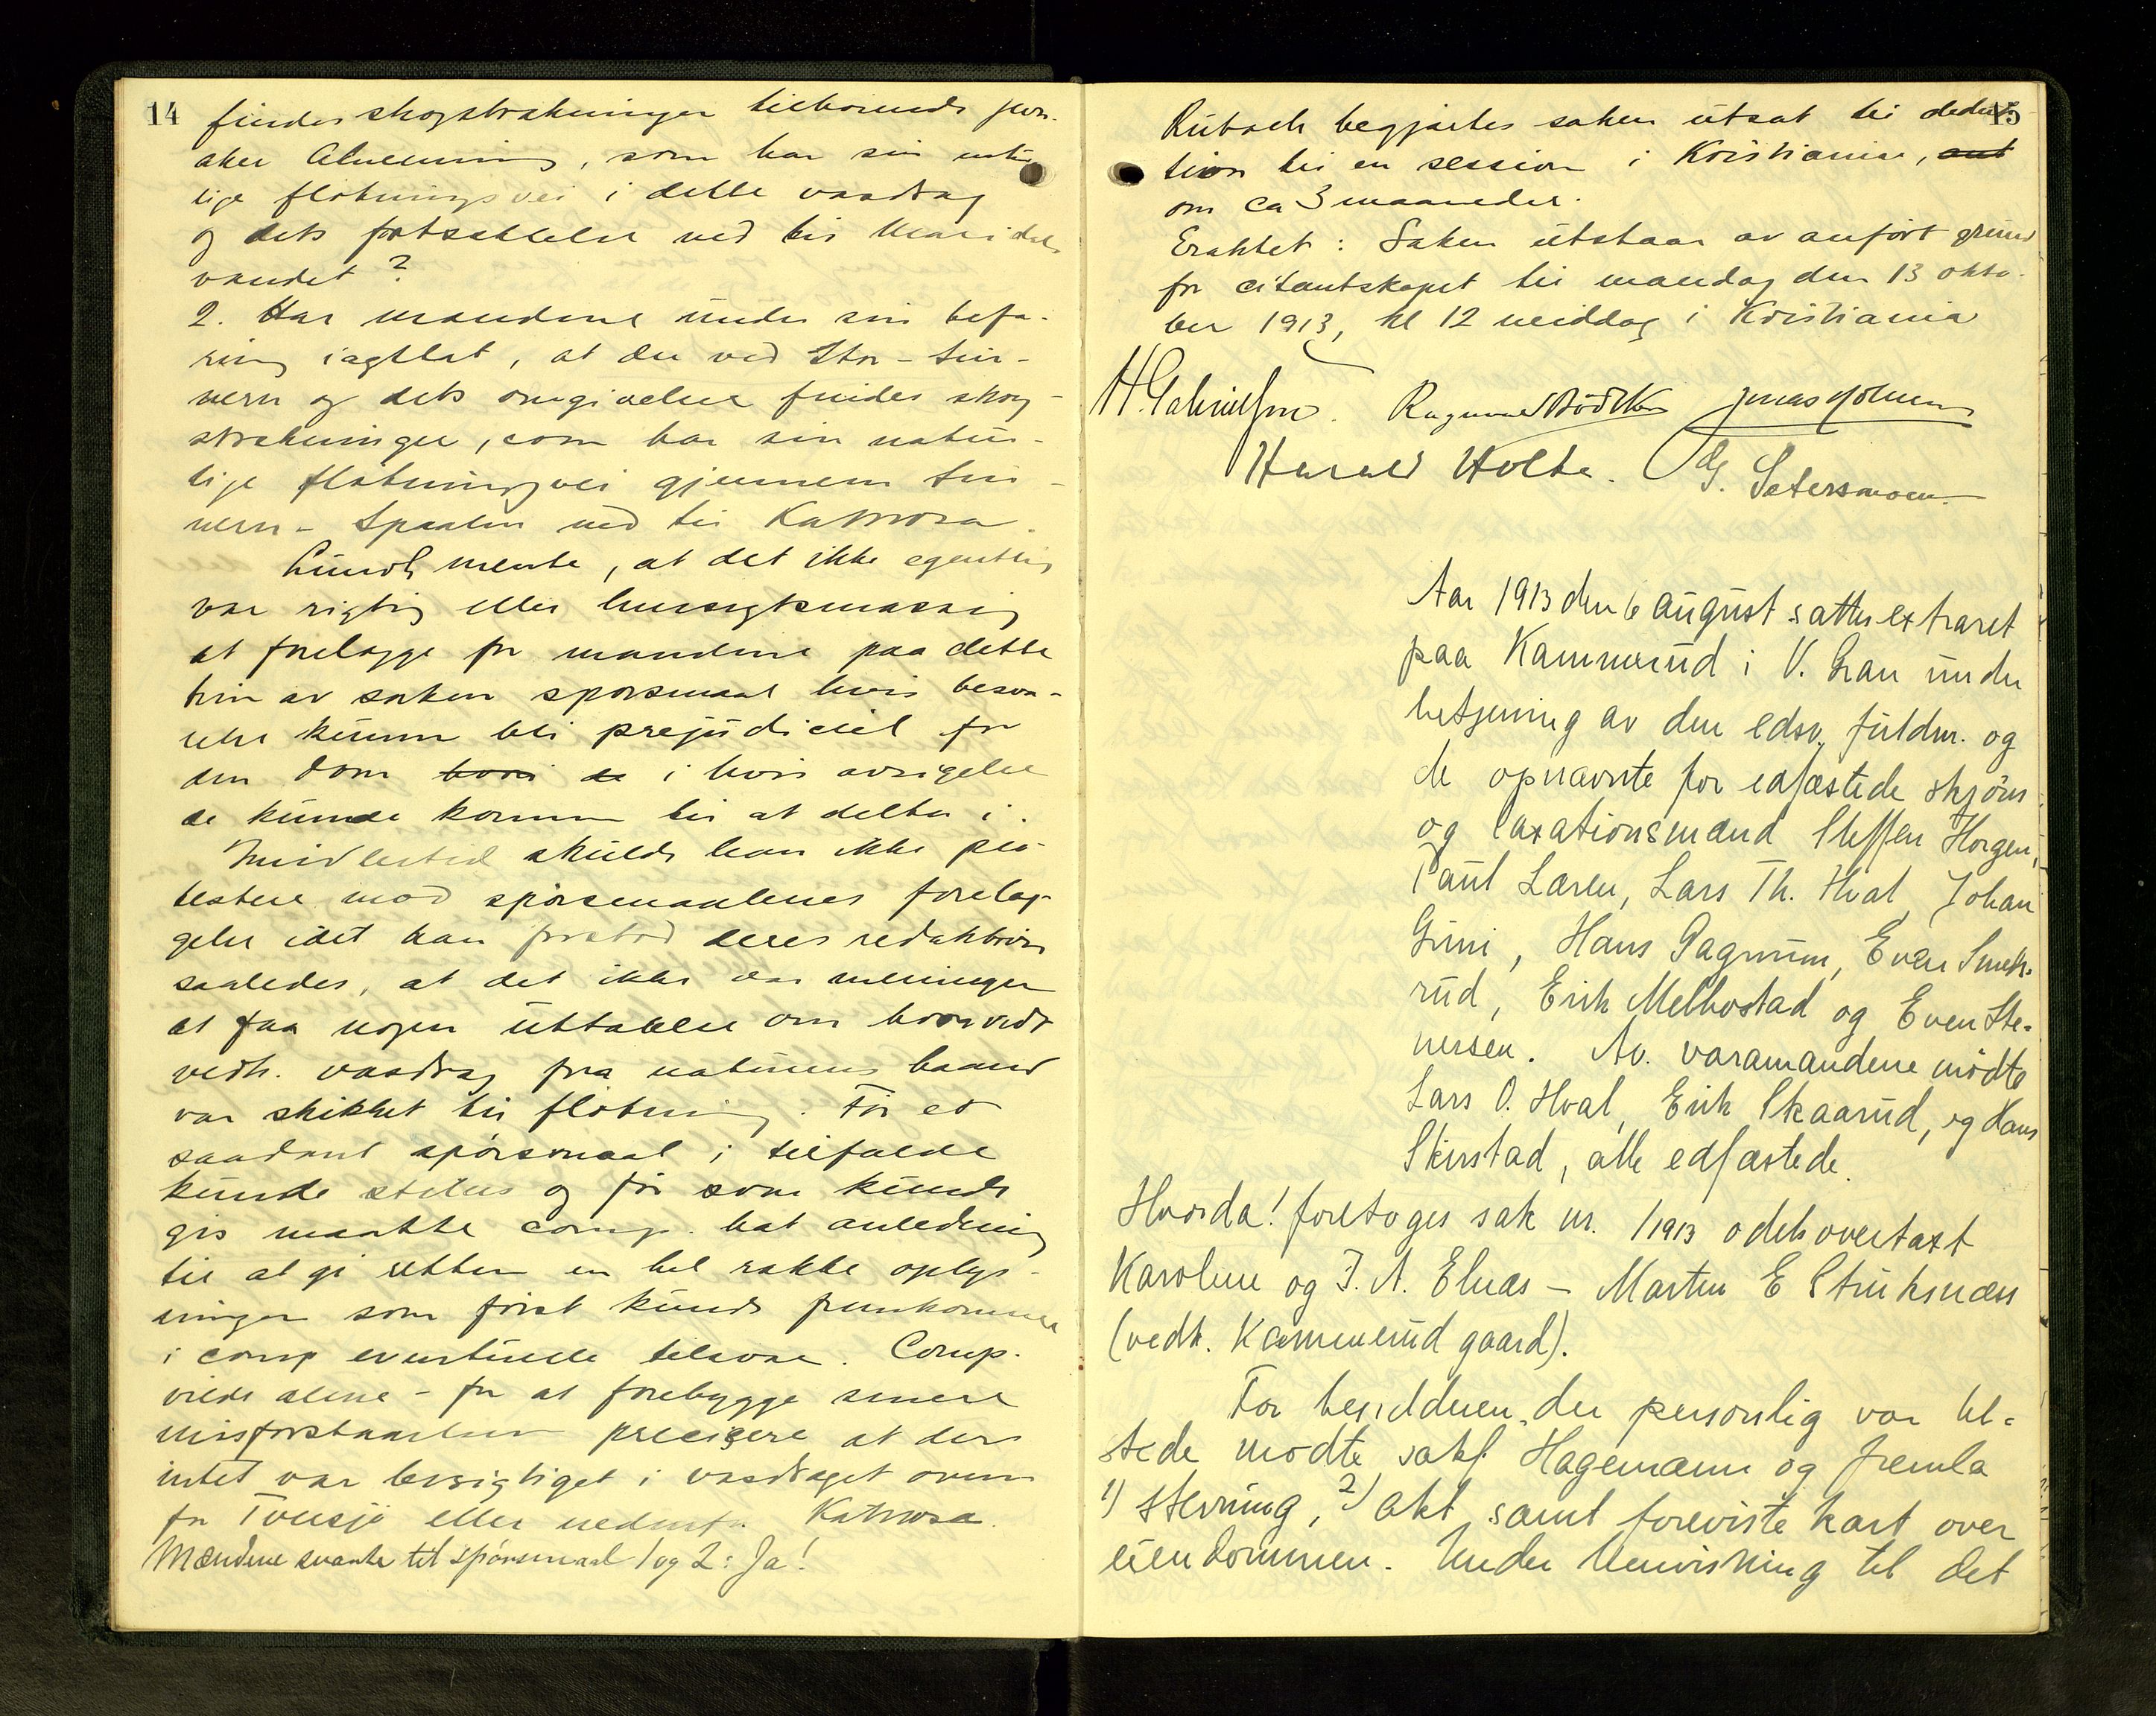 14
findes skogstrækninger tilhørende Jevn-
aker Almenning, som har sin natur-
lige fløtningsvei i dette vasdrag
og dets fortsættelse ned til Maridals
vandet?
2. Har mændene under sin befa-
ring iagttat, at der ved Stor-Sin-
nern og dets omgivelser findes skog-
strækninger, som har sin natur-
lige fløtningsvei gjennem Sin-
nern - Spaalen ned til Katnosa.
Lundh mente, at det ikke egentlig
var rigtig eller hensigtsmæssig
at forelægge for mændene paa dette
trin av saken spørsmaal hvis besva-
relse kunne bli prejudiciel for
den dom hvori de i hvis avsigelse
de kunde komme til at delta i.
Imidlertid skulde han ikke pro-
testere mod spørsmaalenes forelæg-
gelse idet han forstod deres redaktion
saaledes, at det ikke var meningen
at faa nogen uttalelse om hvorvidt
vedk. vasdrag fra naturens haand
var skikket til fløtning. Før et
saadant spørsmaal i tilfælde
kunde stilles og før svar kunde
gis maatte comp. hat anledning
til at gi retten en hel række oplys-
ninger som først kunde fremkomme
i comp eventuelle tilsvar. Comp.
vilde alene - for at forebygge senere
misforstaaelser precisere at der
intet var besigtiget i vasdraget oven
for Tversjø eller nedenfor Katnosa.
Mændene svarte til spørsmaal 1 og 2: Ja!
15
Rübsch begjærtes saken utsat til deduk-
tion til en session i Kristiania, ant
om ca 3 maaneder.
Eragtet: Saken utstaar av anført grund
for citantskapet til mandag den 13 okto-
ber 1913, kl 12 middag i Kristiania
H. Gabrielsen. Ragnvald Bødtker Jonas Holmen
Harald Holte. G. Sætersmoen
Aar 1913 den 6 august sattes extraret
paa Kammerud i V. Gran under
betjening av den edsv. fuldm. og
de opnævnte for edfæstede skjøns
og taxationsmænd Steffen Horgen,
Paul Læren, Lars Th. Hval, Johan
Grini, Hans Dagrum, Even Smeh-
rud, Erik Melbostad og Even Ste-
nersen. Av. varamændene mødte
Lars O. Hval, Erik Skaarud, og Hans
Skirstad, alle edfæstede.
Hvorda! foretoges sak nr. 1/1913 odelsovertaxt
Karoline og I. A. Elnæs - Marten E Struksnæs
(vedk. Kammerud gaard).
For besidderen, der personlig var til-
stede mødte sakf. Hagemann og fremla
1) stevning, 2) akt samt foreviste kart over
eiendommen. Under henvisning til det